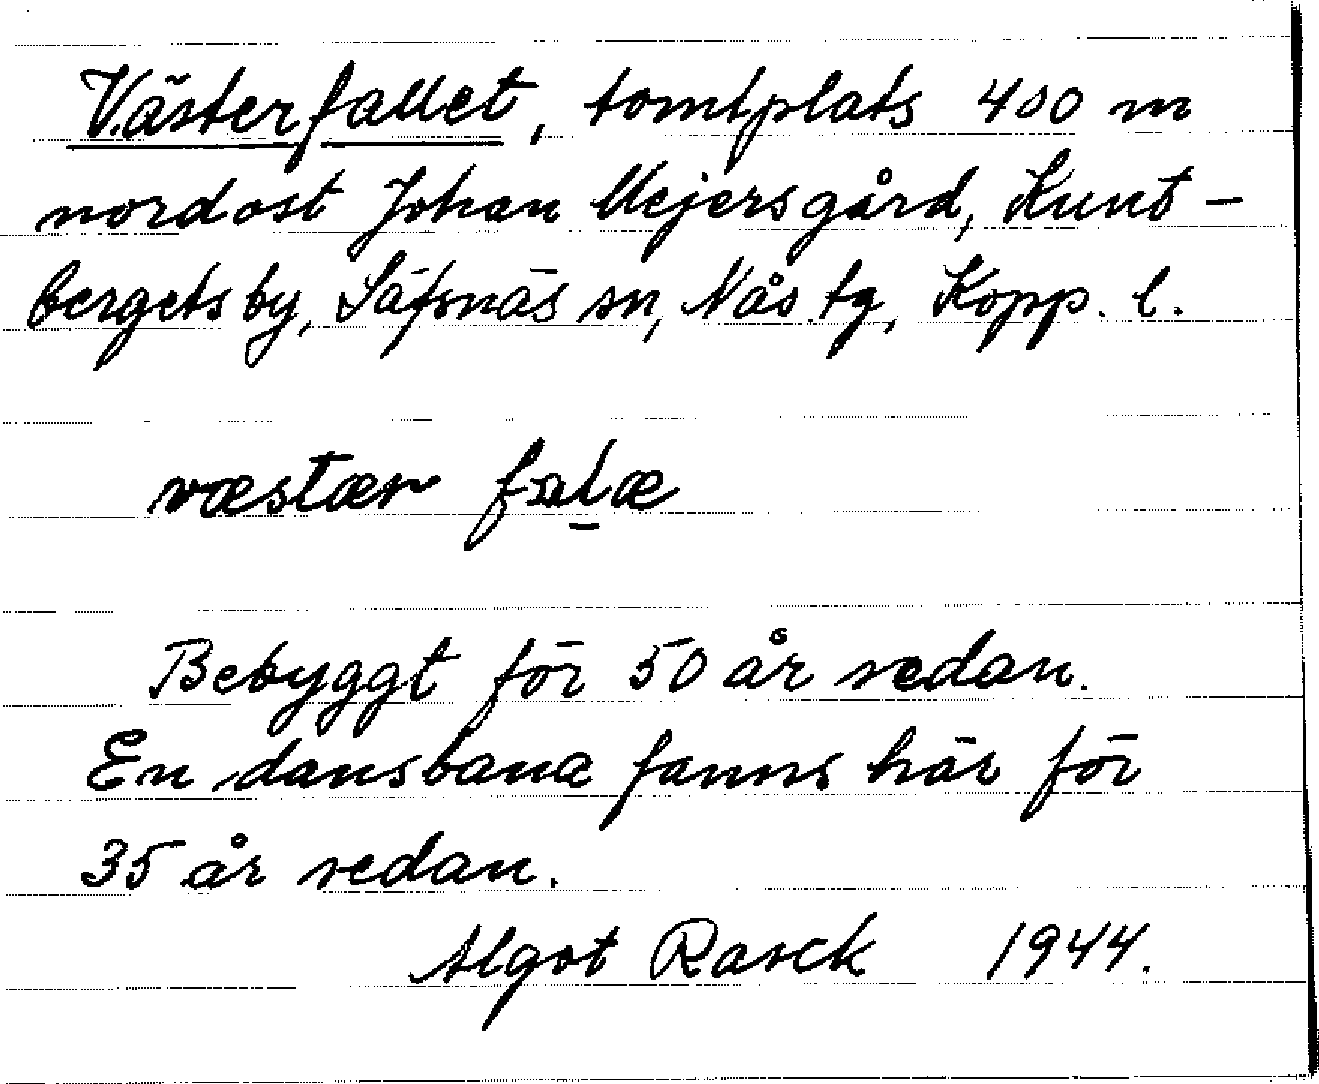 Västerfallet, tomtplats 400 m
nordost Johan Mejersgård, Kunt-
bergetsby, Säfsnäs sn, Nås tg, Kopp. l.
væstær falæ
Bebyggt för 50 år sedan.
En dansbana fanns här för
35 år sedan.
Algot Rasck 1944.